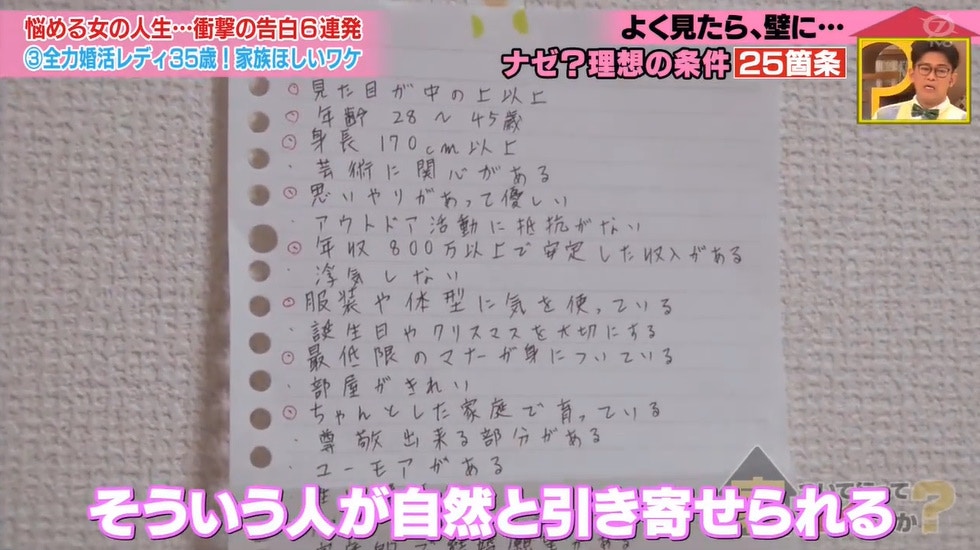 悩める女の人生…衝撃の告白6連発
③全力婚活レディ35歳!家族ほしいワケ
よく見たら、壁に…
ナゼ?理想の条件 25箇条
見た目が中の上以上
年齢 28〜45歳
身長 170cm以上
・芸術に関心がある
思いやりがあって優しい
・アウトドア活動に抵抗がない
年収 800万以上で安定した収入がある
・浮気しない
服装や体型に気を使っている
・誕生日やクリスマスを大切にする
最低限のマナーが身についている
・部屋がきれい
ちゃんとした家庭で育っている
・尊敬出来る部分がある
・ユーモアがある
そういう人が自然と引き寄せられる